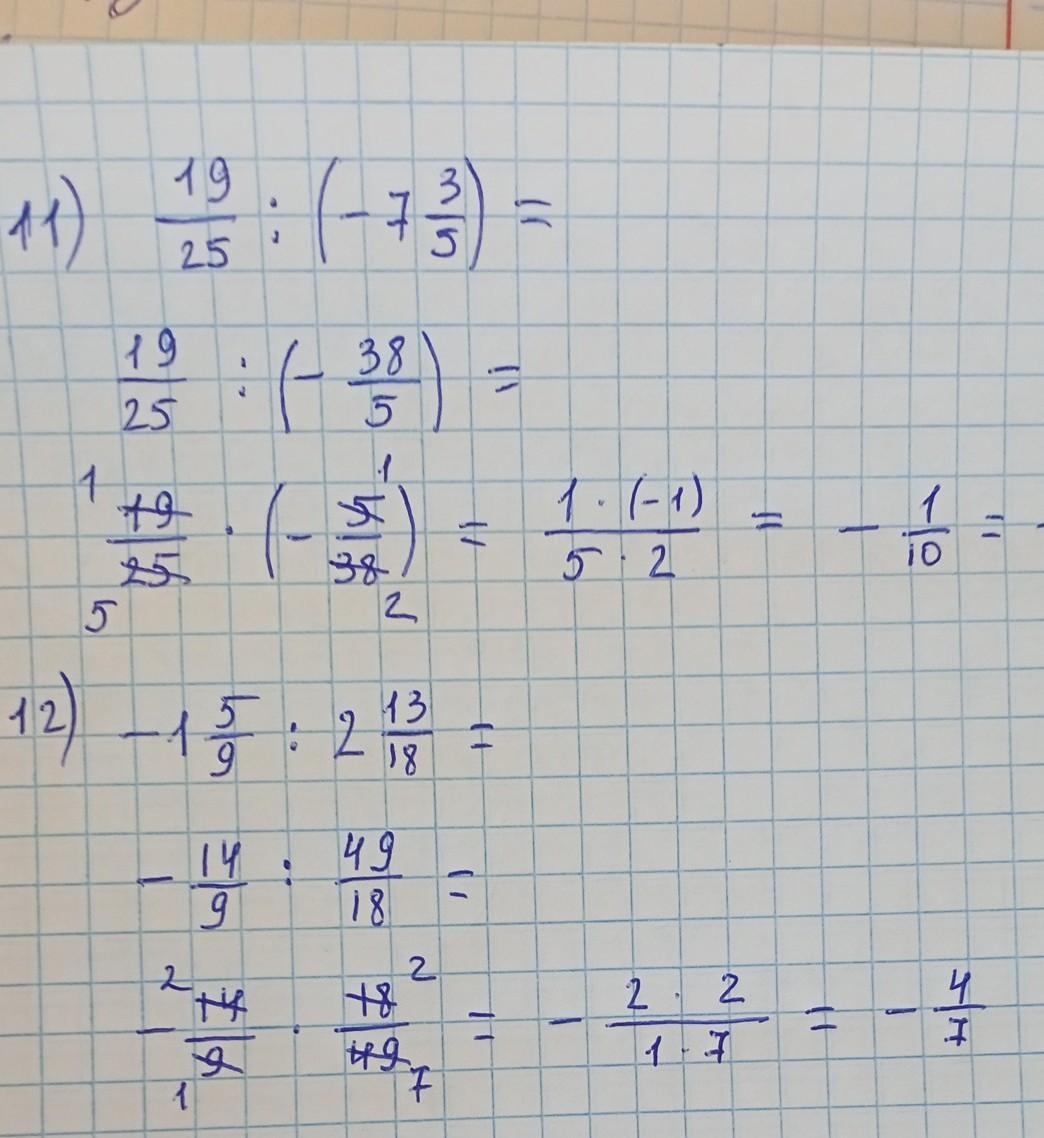 11) 19/25 : (-7 3/5) =
19/25 : (- 38/5) =
1 19/25 5 · (- 5/38) 1 2 = 1 · (-1) / 5 · 2 = - 1/10 = -
12) -1 5/9 : 2 13/18 =
- 14/9 : 49/18 =
- 2 14/9 1 · 18/49 2 7 = - 2 · 2 / 1 · 7 = - 4/7